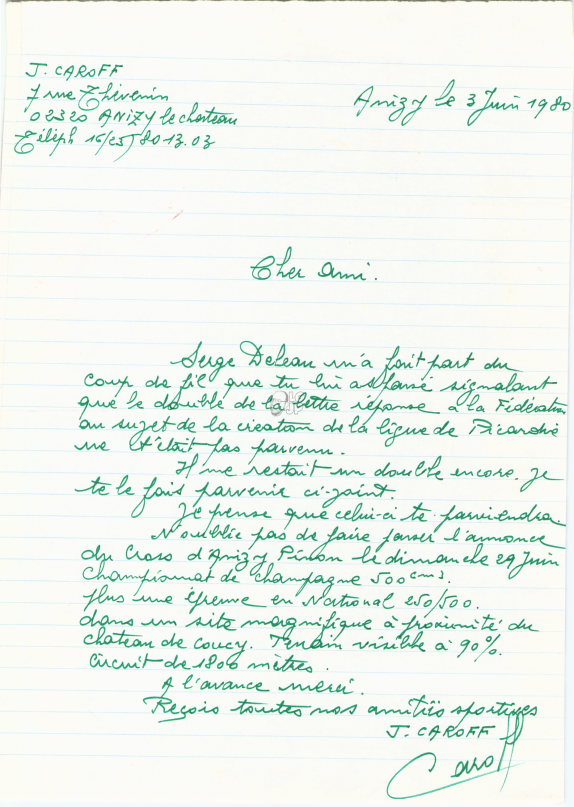 J. CAROFF
7 rue Thévenin
02320 ANIZY le chateau
Téléph 16/23/80.13.03
Anizy le 3 Juin 1980
Cher Ami.
Serge Deleau m'a fait part du
coup de fil que tu lui as passé signalant
que le double de la lettre réponse à la Fédération
au sujet de la création de la ligue de Picardie
ne t'était pas parvenu.
Il me restait un double encore. Je
te le fais parvenir ci-joint.
Je pense que celui-ci te parviendra.
N'oublie pas de faire passer l'annonce
du Cross d'Anizy Pinon le dimanche 29 Juin
Championnat de champagne 500 cm3.
plus une épreuve en National 250/500.
dans un site magnifique à proximité du
chateau de coucy. Terrain visible à 90%.
Circuit de 1800 mètres.
A l'avance merci.
Reçois toutes nos amitiés sportives
J. CAROFF
Caroff